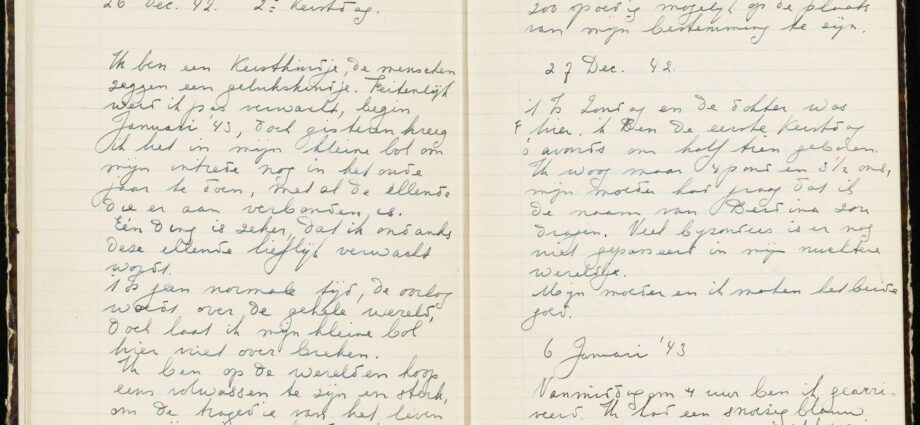 26 Dec. 42. 2e Kerstdag.
Ik ben een Kerstkindje, de menschen
zeggen een gelukskindje. Feitenlijk
werd ik pas verwacht, begin
Januari '43, doch gisteren kreeg
ik het in mijn kleine bol om
mijn intrede nog in het oude
jaar te doen, met al de ellende
die er aan verbonden is.
Eén ding is zeker, dat ik ondanks
deze ellende lieflijk verwacht
wordt.
't Is geen normale tijd, de oorlog
woedt over de gehele wereld,
doch laat ik mijn kleine bol
hier niet over breken.
Ik ben op de wereld en hoop
eens volwassen te zijn en sterk,
om de tragedie van het leven
zoo spoedig mogelijk op de plaats
van mijn bestemming te zijn.
27 Dec. 42.
't Is Zondag en de dokter was
hier. ik Ben de eerste Kerstdag
's avonds om half tien geboren.
Ik woog maar 4 pond en 3½ ons,
mijn moeder had graag dat ik
de naam van Berdina zou
dragen. Veel byzonders is er nog
niet gepasseerd in mijn nuchtere
wereldje.
Mijn moeder en ik maken het beide
goed.
6 Januari '43
Vanmiddag om 4 uur ben ik gearri-
veerd. Ik had een snoezig blauw